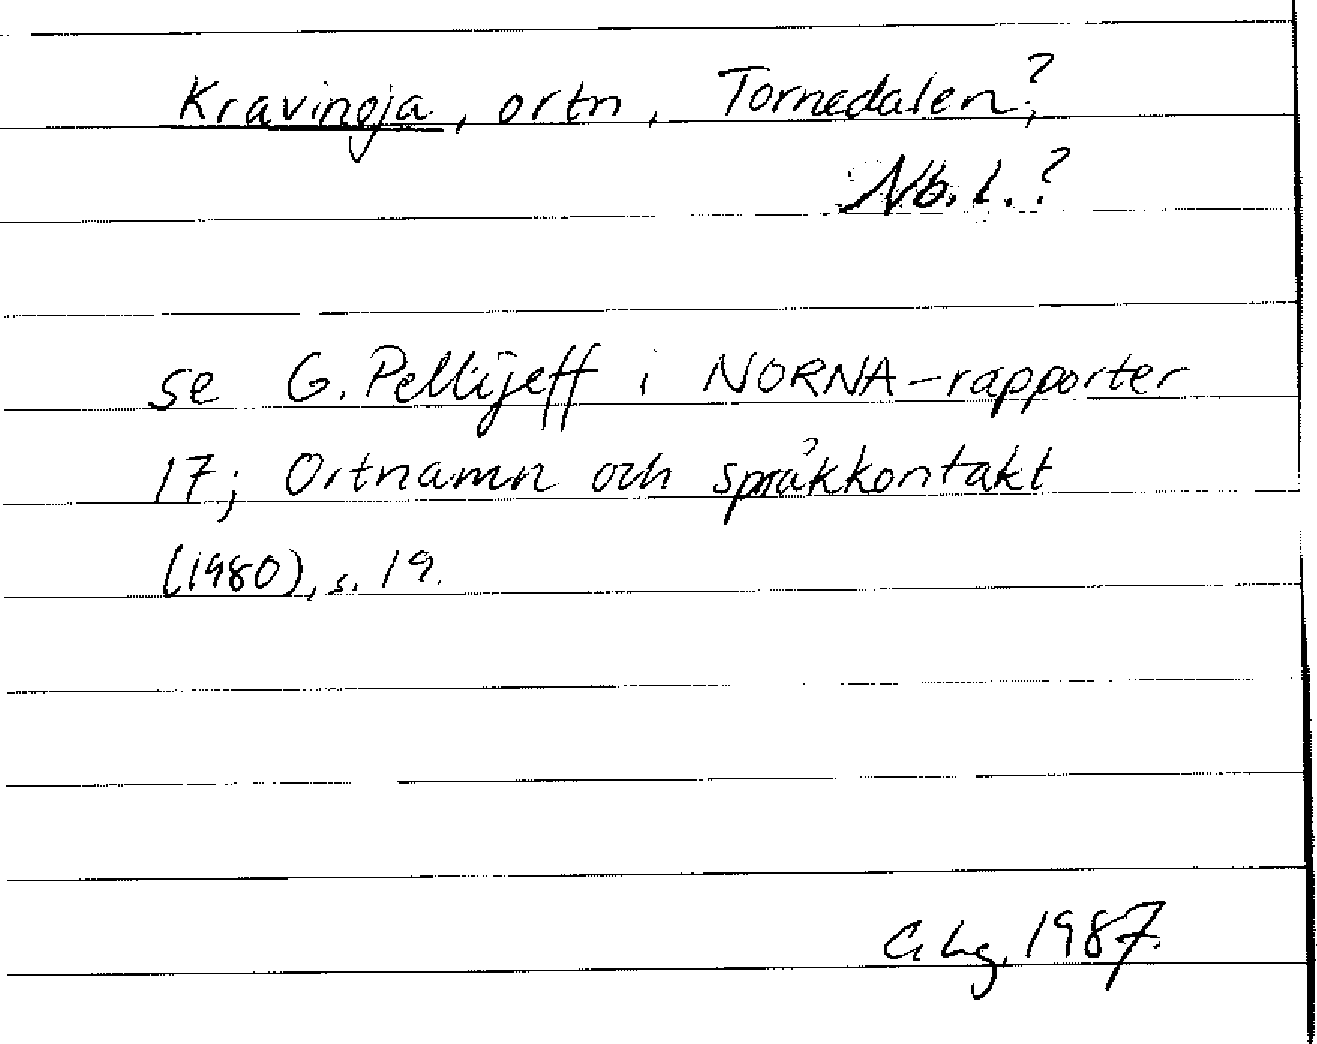 Kravinoja, ortn, Tornedalen?;
Nb. l.?
se G. Pellijeff i NORNA-rapporter
17; Ortnamn och språkkontakt
(1980), s. 19.
1987.